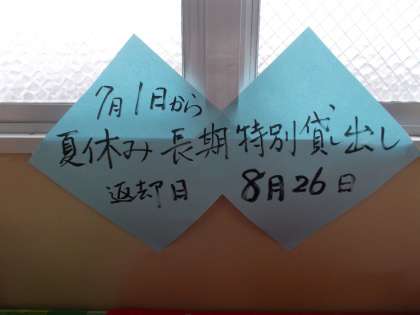 7月1日から
夏休み長期特別貸し出し
返却日 8月26日